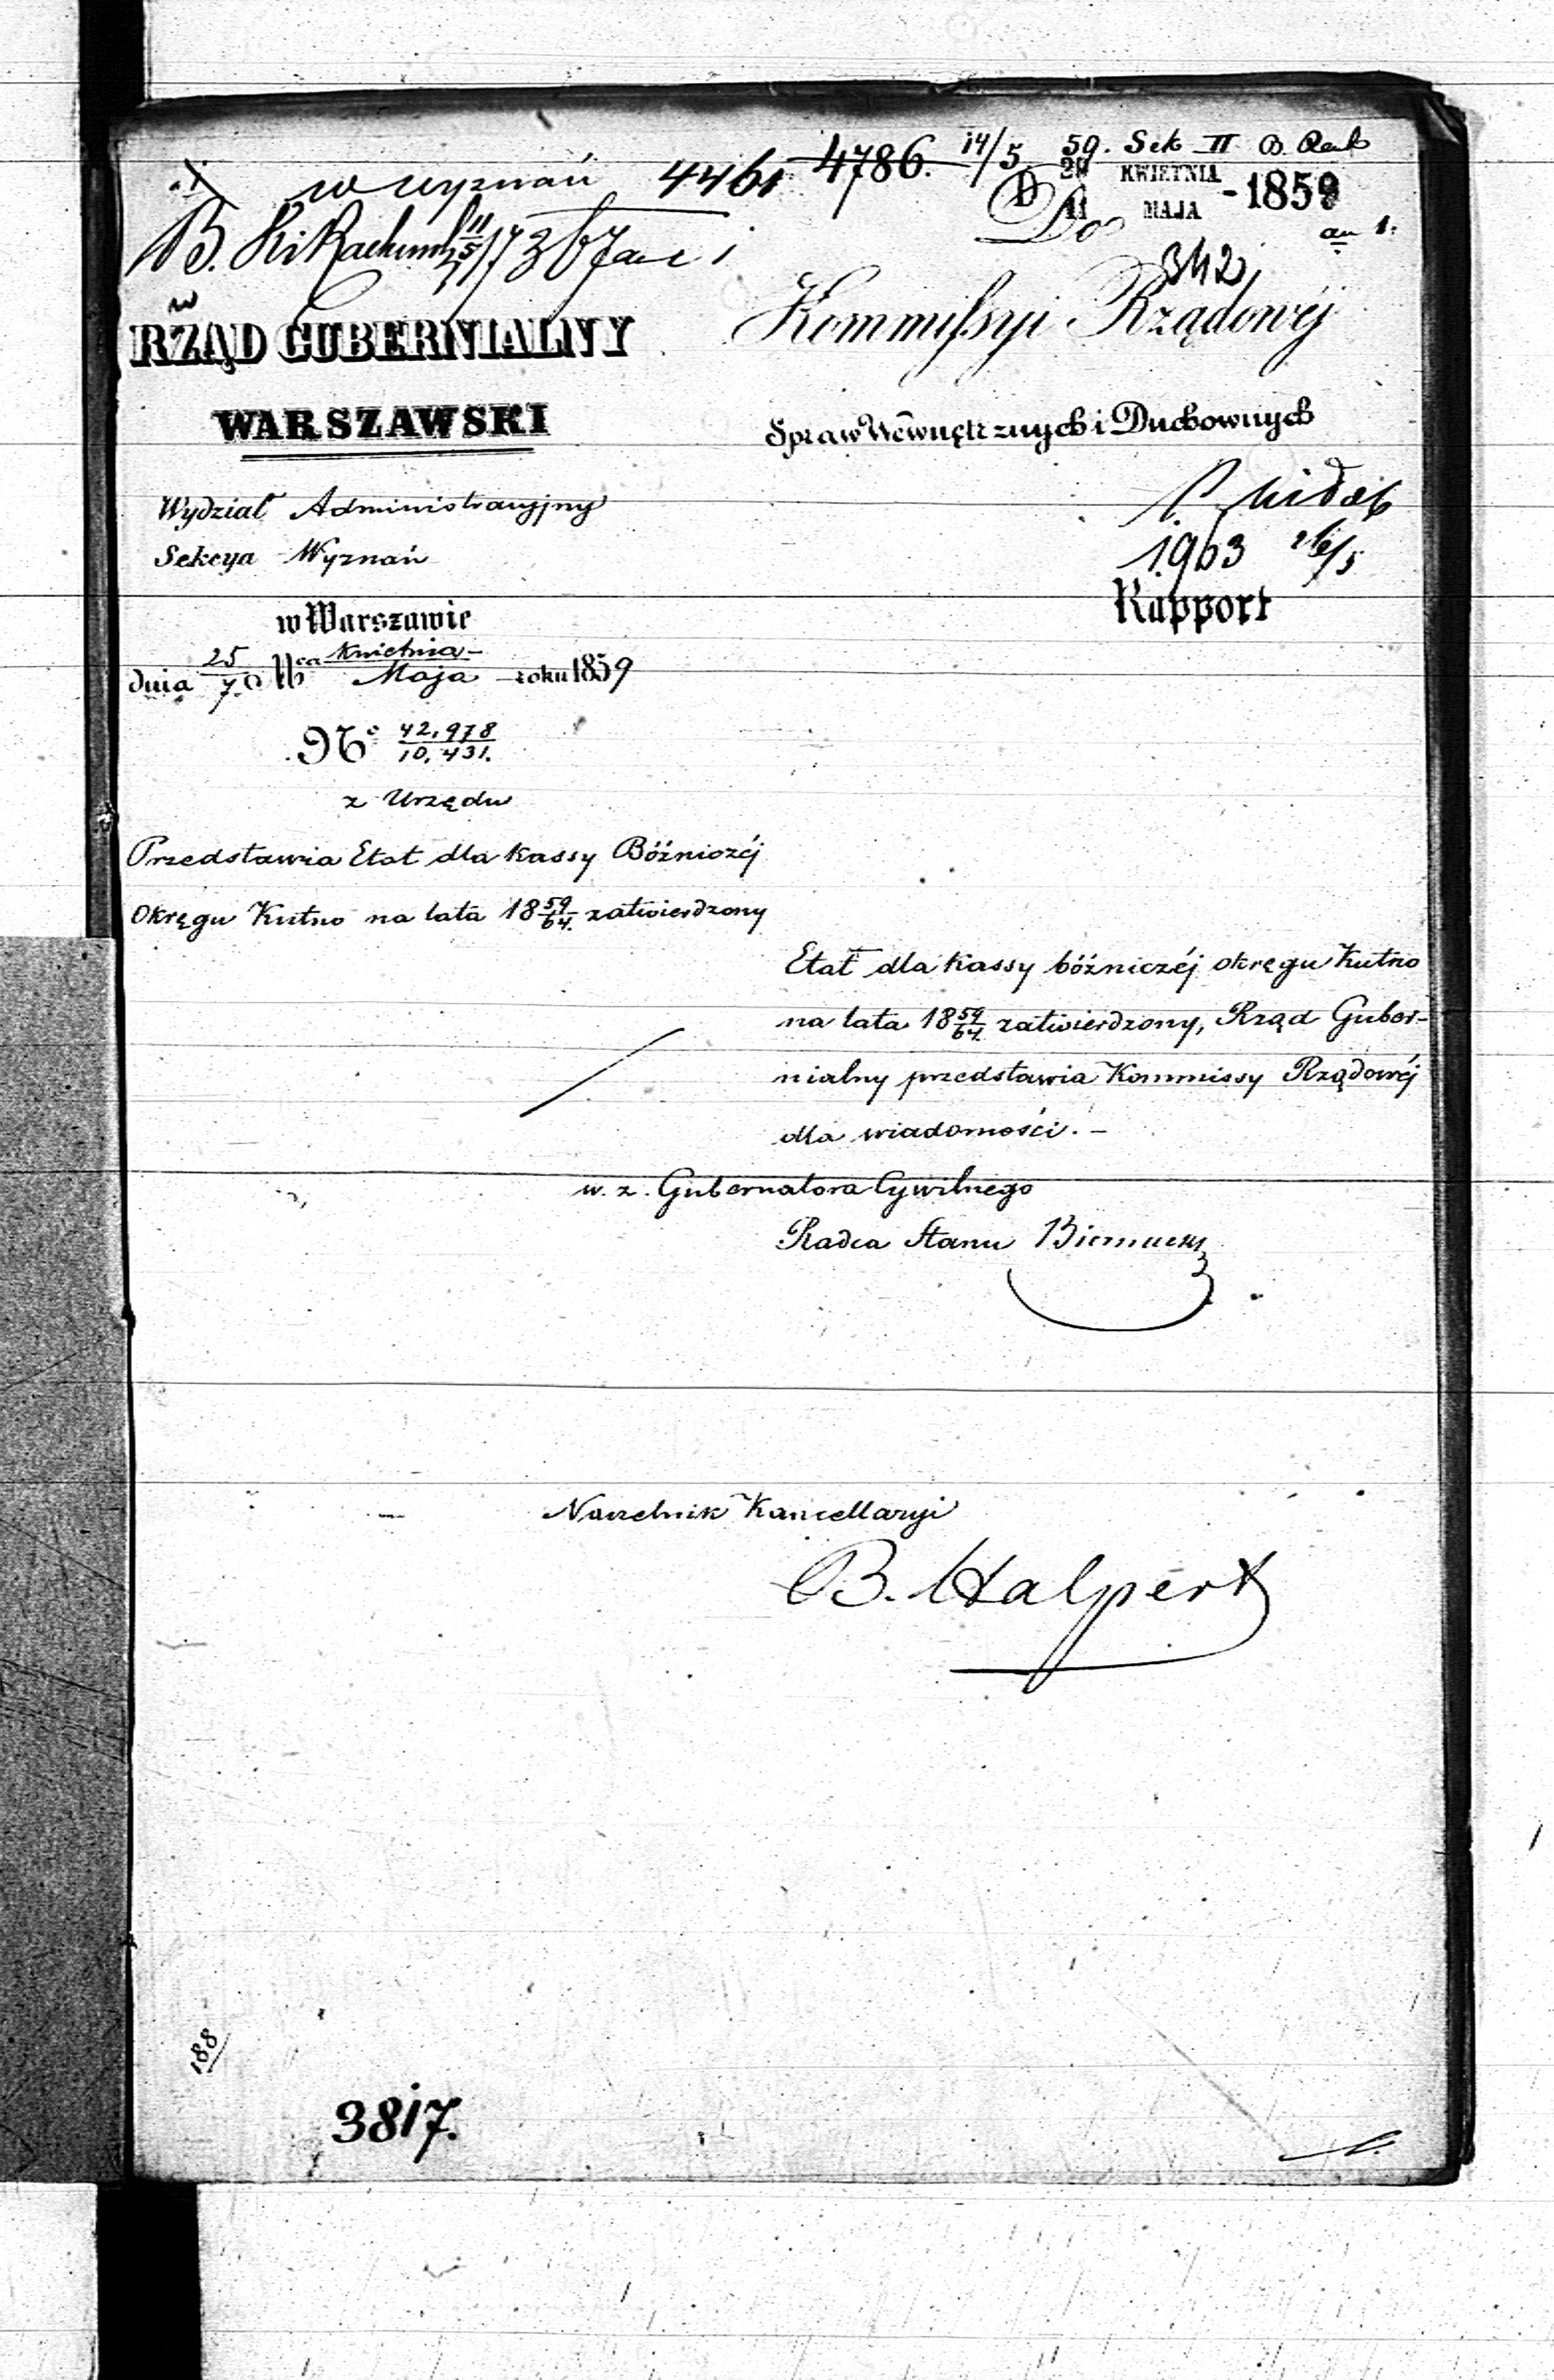 w wyznań 4461 4786. 14/5 59. Sek II B. Rach
D 29/11 KWIETNIA MAJA - 1859
an 1.
B.
342
w
RZĄD GUBERNIALNY
WARSZAWSKI
Wydział Administracyjny
Sekcya Wyznań
w Warszawie
dnia 25/7 Kwietnia/Maja roku 1859
No 42,978/10,431.
z Urzędu
Przedstawia Etat dla Kassy Bóźniczéj
Okręgu Kutno na lata 18 59/64. zatwierdzony
Do
Kommissyi Rządowéj
Spraw Wewnętrznych i Duchownych
1963 26/5
Rapport
Etat dla Kassy bóźniczéj okręgu Kutno
na lata 18 59/64 zatwierdzony, Rząd Guber-
nialny przedstawia Kommissy Rządowéj
dla wiadomości. –
w. z. Gubernatora Cywilnego
Radca Stanu
Naczelnik Kancellaryi
B. Halpert
188
3817.